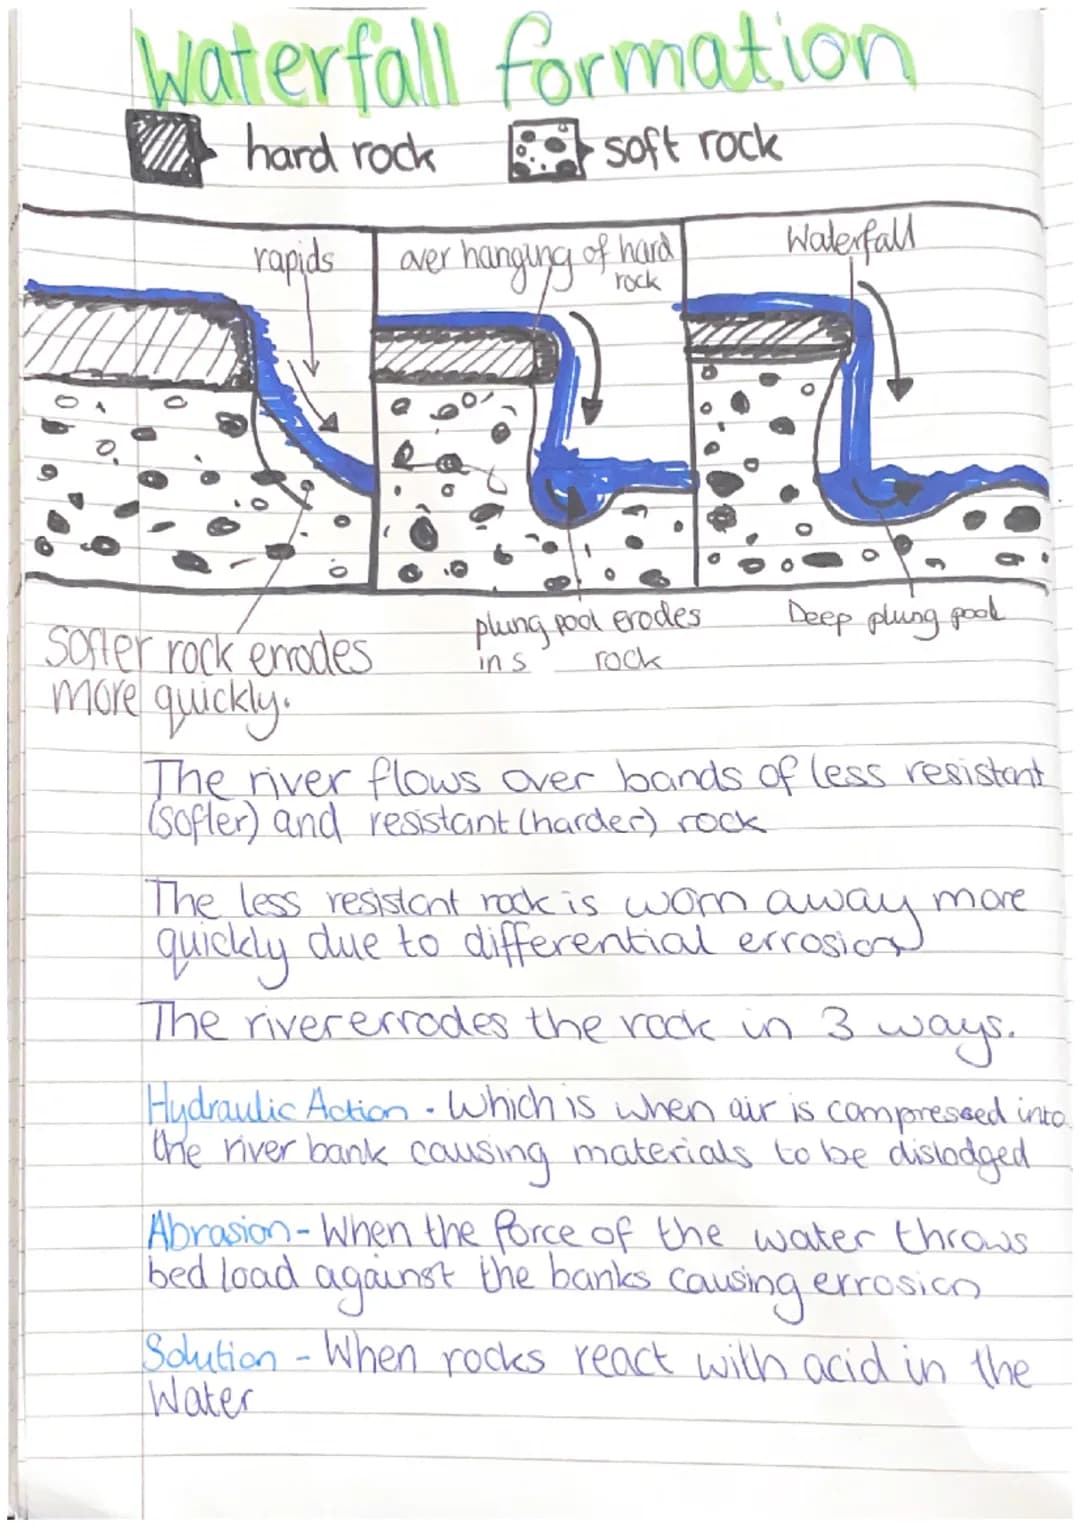 Waterfall formation
hard rock
soft rock
rapids
over hanging of hard
rock
Waterfall
Softer rock errodes
more quickly.
plung pool erodes
in s rock
Deep plung pool
The river flows over bands of less resistant
(softer) and resistant (harder) rock
The less resistant rock is worn away more
quickly due to differential errosion
The river errodes the rock in 3 ways.
Hydraulic Action - Which is when air is compressed into
the river bank causing materials to be dislodged
Abrasion - When the force of the water throws
bed load against the banks causing errosion
Solution - When rocks react with acid in the
Water